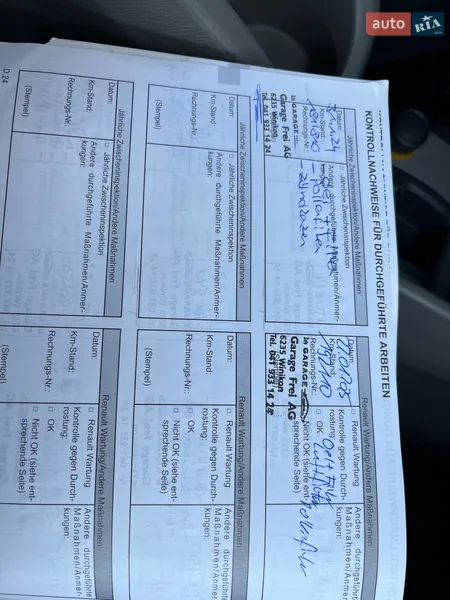 auto RIA.com
KONTROLLNACHWEISE FÜR DURCHGEFÜHRTE ARBEITEN
Jährliche Zwischeninspektion/Andere Maßnahmen
Datum:
□ Jährliche Zwischeninspektion
Km-Stand:
Andere durchgeführte
Anmer-
Rechnungs-Nr.:
Pollenfilter
la GARAGE
Garage Frei AG
6235 Winikon
Tel. 041 933 14 24
Renault Wartung/Andere Maßnahmen
Datum:
□ Renault Wartung
Andere durchgeführte
Maßnahmen/Anmer-
kungen:
Km-Stand:
Kontrolle gegen Durch-
rostung:
Rechnungs-Nr.:
□ OK
Nicht OK (siehe ent-
sprechende Seite)
la GARAGE
Garage Frei AG
6235 Winikon
Tel. 041 933 14 24
Jährliche Zwischeninspektion/Andere Maßnahmen
Datum:
□ Jährliche Zwischeninspektion
Km-Stand:
Andere durchgeführte Maßnahmen/Anmer-
kungen:
Rechnungs-Nr.:
(Stempel)
Renault Wartung/Andere Maßnahmen
Datum:
□ Renault Wartung
Andere durchgeführte
Maßnahmen/Anmer-
kungen:
Km-Stand:
Kontrolle gegen Durch-
rostung:
Rechnungs-Nr.:
□ OK
□ Nicht OK (siehe ent-
sprechende Seite)
(Stempel)
Jährliche Zwischeninspektion/Andere Maßnahmen
Datum:
□ Jährliche Zwischeninspektion
Km-Stand:
Andere durchgeführte Maßnahmen/Anmer-
kungen:
Rechnungs-Nr.:
(Stempel)
Renault Wartung/Andere Maßnahmen
Datum:
□ Renault Wartung
Andere durchgeführte
Maßnahmen/Anmer-
kungen:
Km-Stand:
Kontrolle gegen Durch-
rostung:
Rechnungs-Nr.:
□ OK
□ Nicht OK (siehe ent-
sprechende Seite)
(Stempel)
D.24